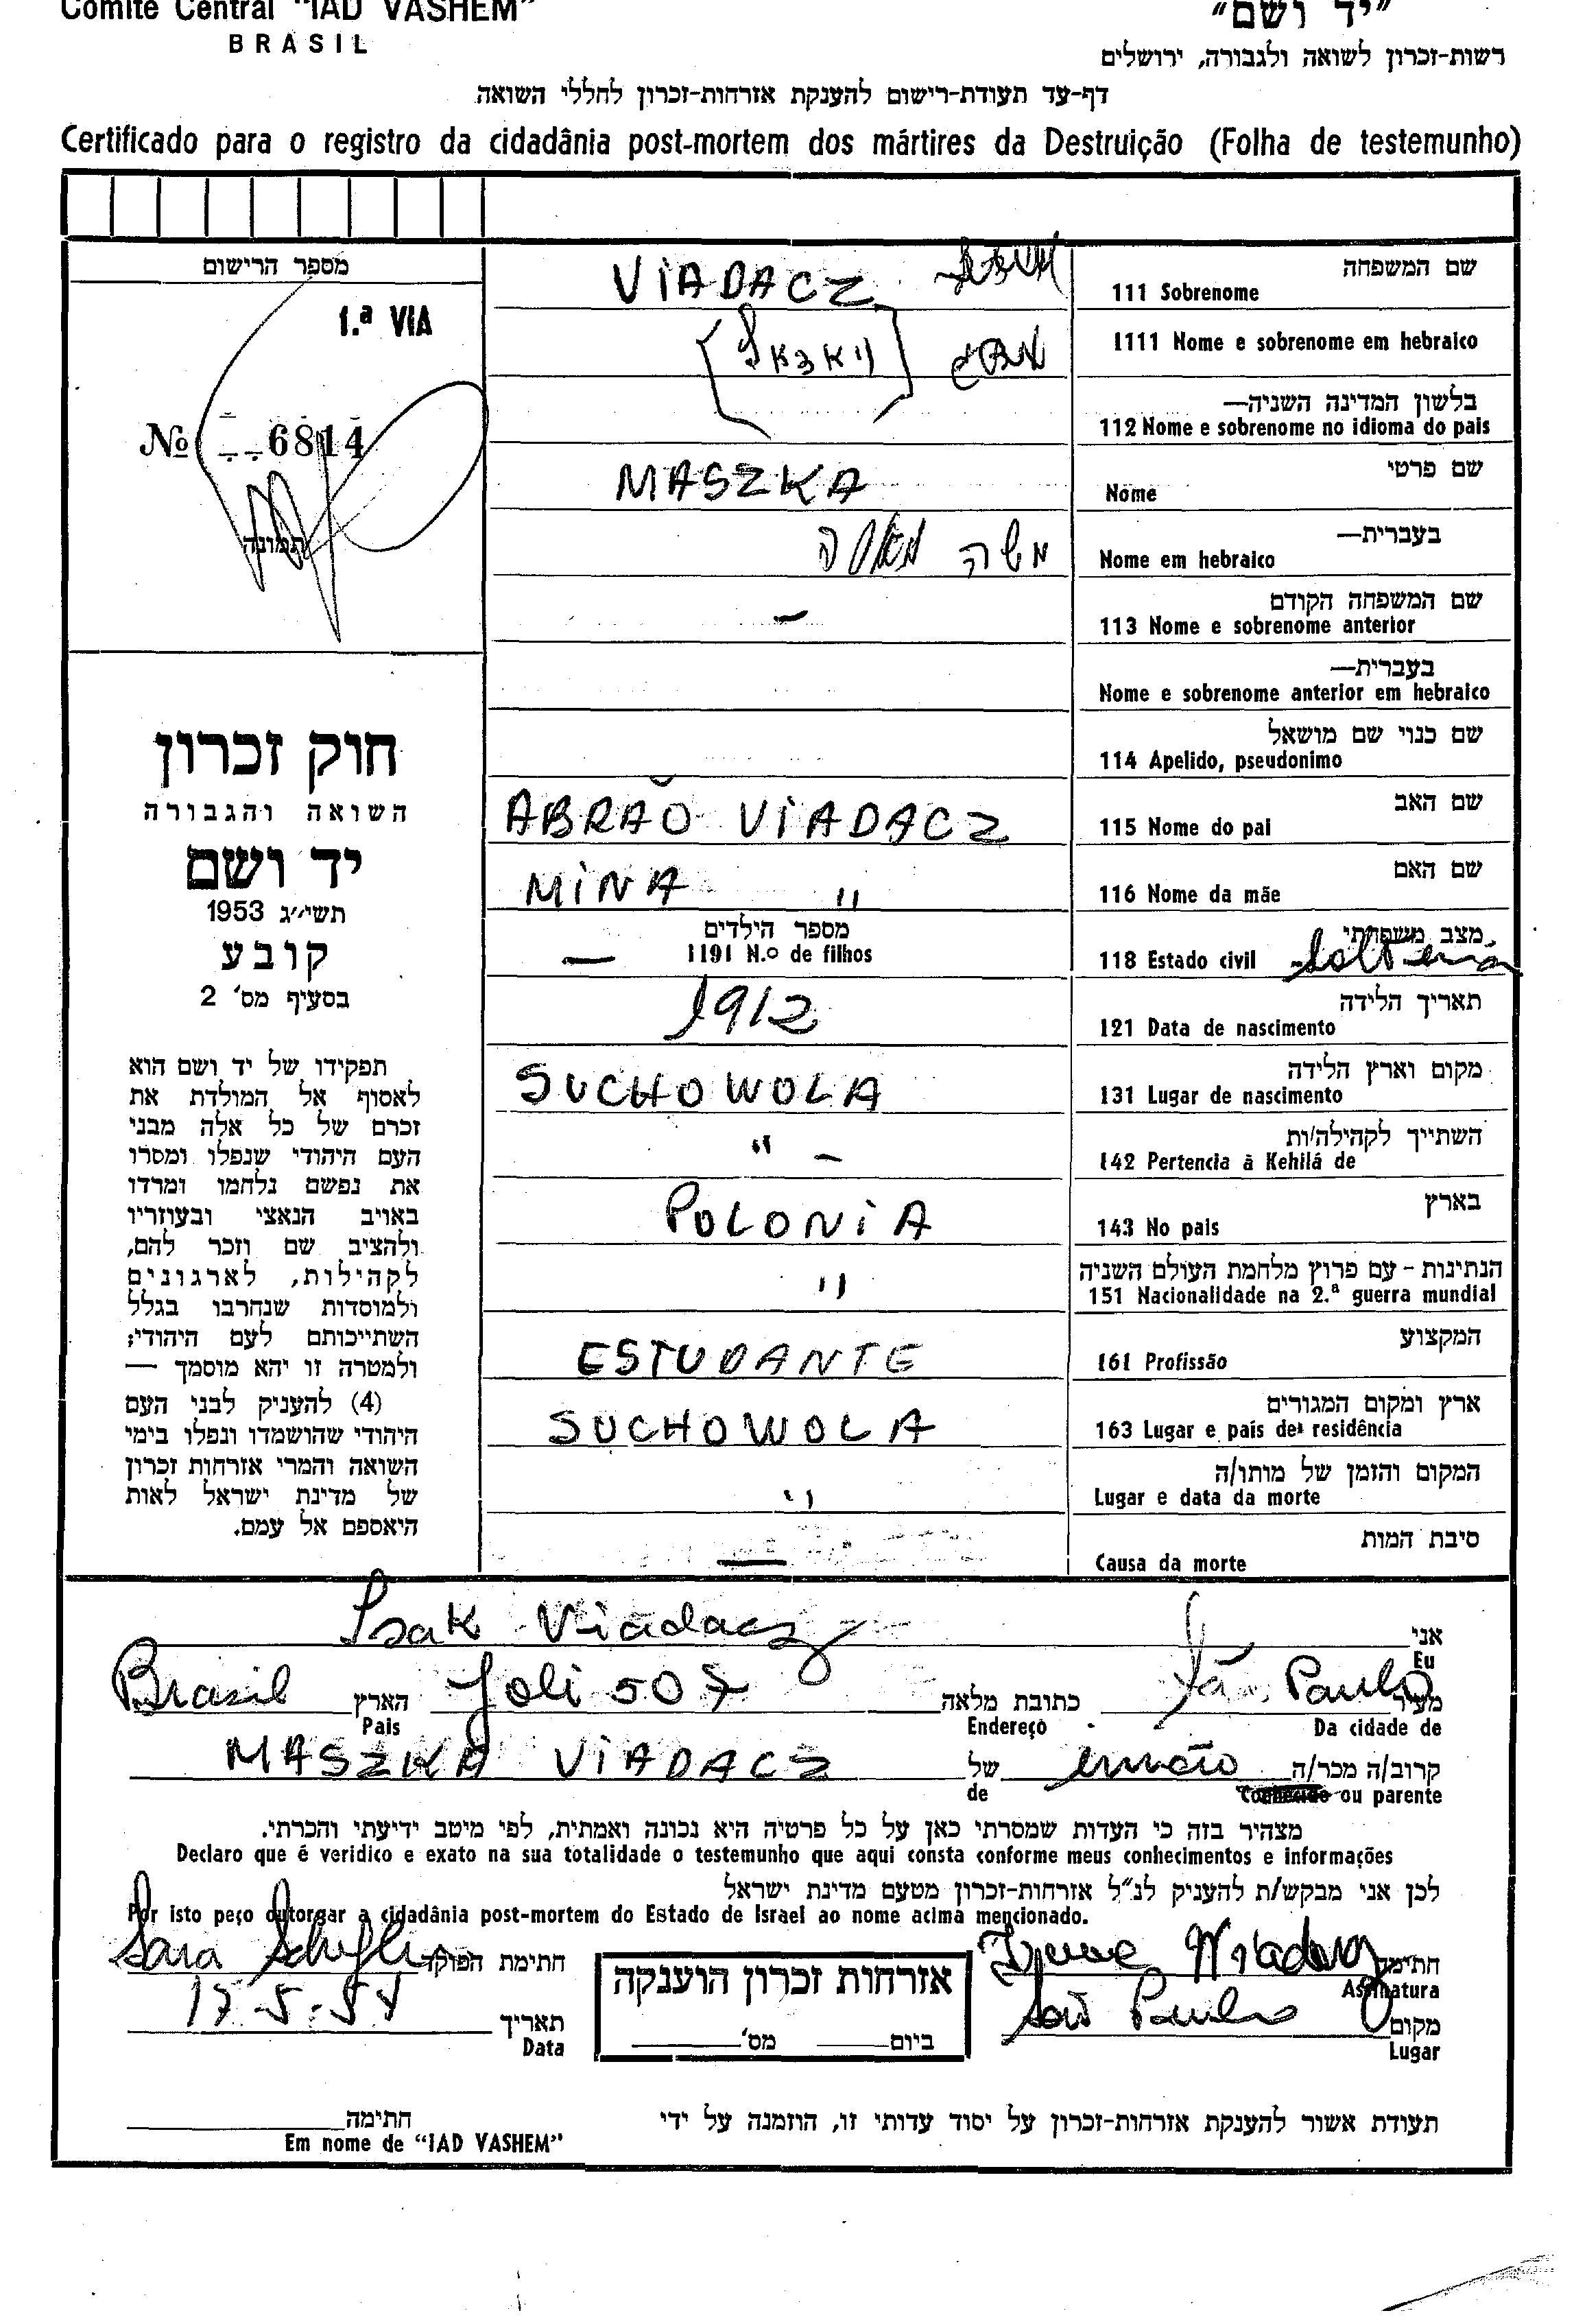 Comité Central "IAD VASHEM"
BRASIL
"יד ושם"
רשות-זכרון לשואה ולגבורה, ירושלים
דף-עד תעודת-רישום להענקת אזרחות-זכרון לחללי השואה
Certificado para o registro da cidadânia post-mortem dos mártires da Destruição (Folha de testemunho)
מספר הרישום
1.ª VIA
№ 6814
תמונה
חוק זכרון
השואה והגבורה
יד ושם
תשי״ג 1953
קובע
בסעיף מס' 2
תפקידו של יד ושם הוא
לאסוף אל המולדת את
זכרם של כל אלה מבני
העם היהודי שנפלו ומסרו
את נפשם נלחמו ומרדו
באויב הנאצי ובעוזריו
ולהציב שם וזכר להם,
לקהילות, לארגונים
ולמוסדות שנחרבו בגלל
השתייכותם לעם היהודי;
ולמטרה זו יהא מוסמך —
(4) להעניק לבני העם
היהודי שהושמדו ונפלו בימי
השואה והמרי אזרחות זכרון
של מדינת ישראל לאות
היאספם אל עמם.
שם המשפחה
111 Sobrenome VIADACZ
1111 Nome e sobrenome em hebraico
בלשון המדינה השניה—
112 Nome e sobrenome no idioma do pais
שם פרטי
Nome MASZKA
בעברית—
Nome em hebraico משה
שם המשפחה הקודם
113 Nome e sobrenome anterior —
בעברית—
Nome e sobrenome anterior em hebraico
שם כנוי שם מושאל
114 Apelido, pseudonimo
שם האב
115 Nome do pai ABRAÃO VIADACZ
שם האם
116 Nome da mãe MINA "
מצב משפחתי
118 Estado civil Solteira
מספר הילדים
1191 N.º de filhos —
תאריך הלידה
121 Data de nascimento 1912
מקום וארץ הלידה
131 Lugar de nascimento SUCHOWOLA
השתייך לקהילה/ות
142 Pertencia à Kehilá de " –
בארץ
143 No pais POLONIA
הנתינות - עם פרוץ מלחמת העולם השניה
151 Nacionalidade na 2.ª guerra mundial "
המקצוע
161 Profissão ESTUDANTE
ארץ ומקום המגורים
163 Lugar e pais de residência SUCHOWOLA
המקום והזמן של מותו/ה
Lugar e data da morte "
סיבת המות
Causa da morte —
אני
Eu Isak Viadacz
מעיר São Paulo כתובת מלאה Joli 507 הארץ Brasil
Da cidade de Endereço Pais
קרוב/ה מכר/ה irmão של MASZKA VIADACZ
Conhecido ou parente de
מצהיר בזה כי העדות שמסרתי כאן על כל פרטיה היא נכונה ואמתית, לפי מיטב ידיעתי והכרתי.
Declaro que é veridico e exato na sua totalidade o testemunho que aqui consta conforme meus conhecimentos e informações
לכן אני מבקש/ת להעניק לנ"ל אזרחות-זכרון מטעם מדינת ישראל
Por isto peço outorgar a cidadânia post-mortem do Estado de Israel ao nome acima mencionado.
חתימה
Assinatura
חתימת הפוקד Sara
מקום São Paulo
Lugar
תאריך
Data
אזרחות זכרון הוענקה
ביום מס'
תעודת אשור להענקת אזרחות-זכרון על יסוד עדותי זו, הוזמנה על ידי
חתימה
Em nome de "IAD VASHEM"